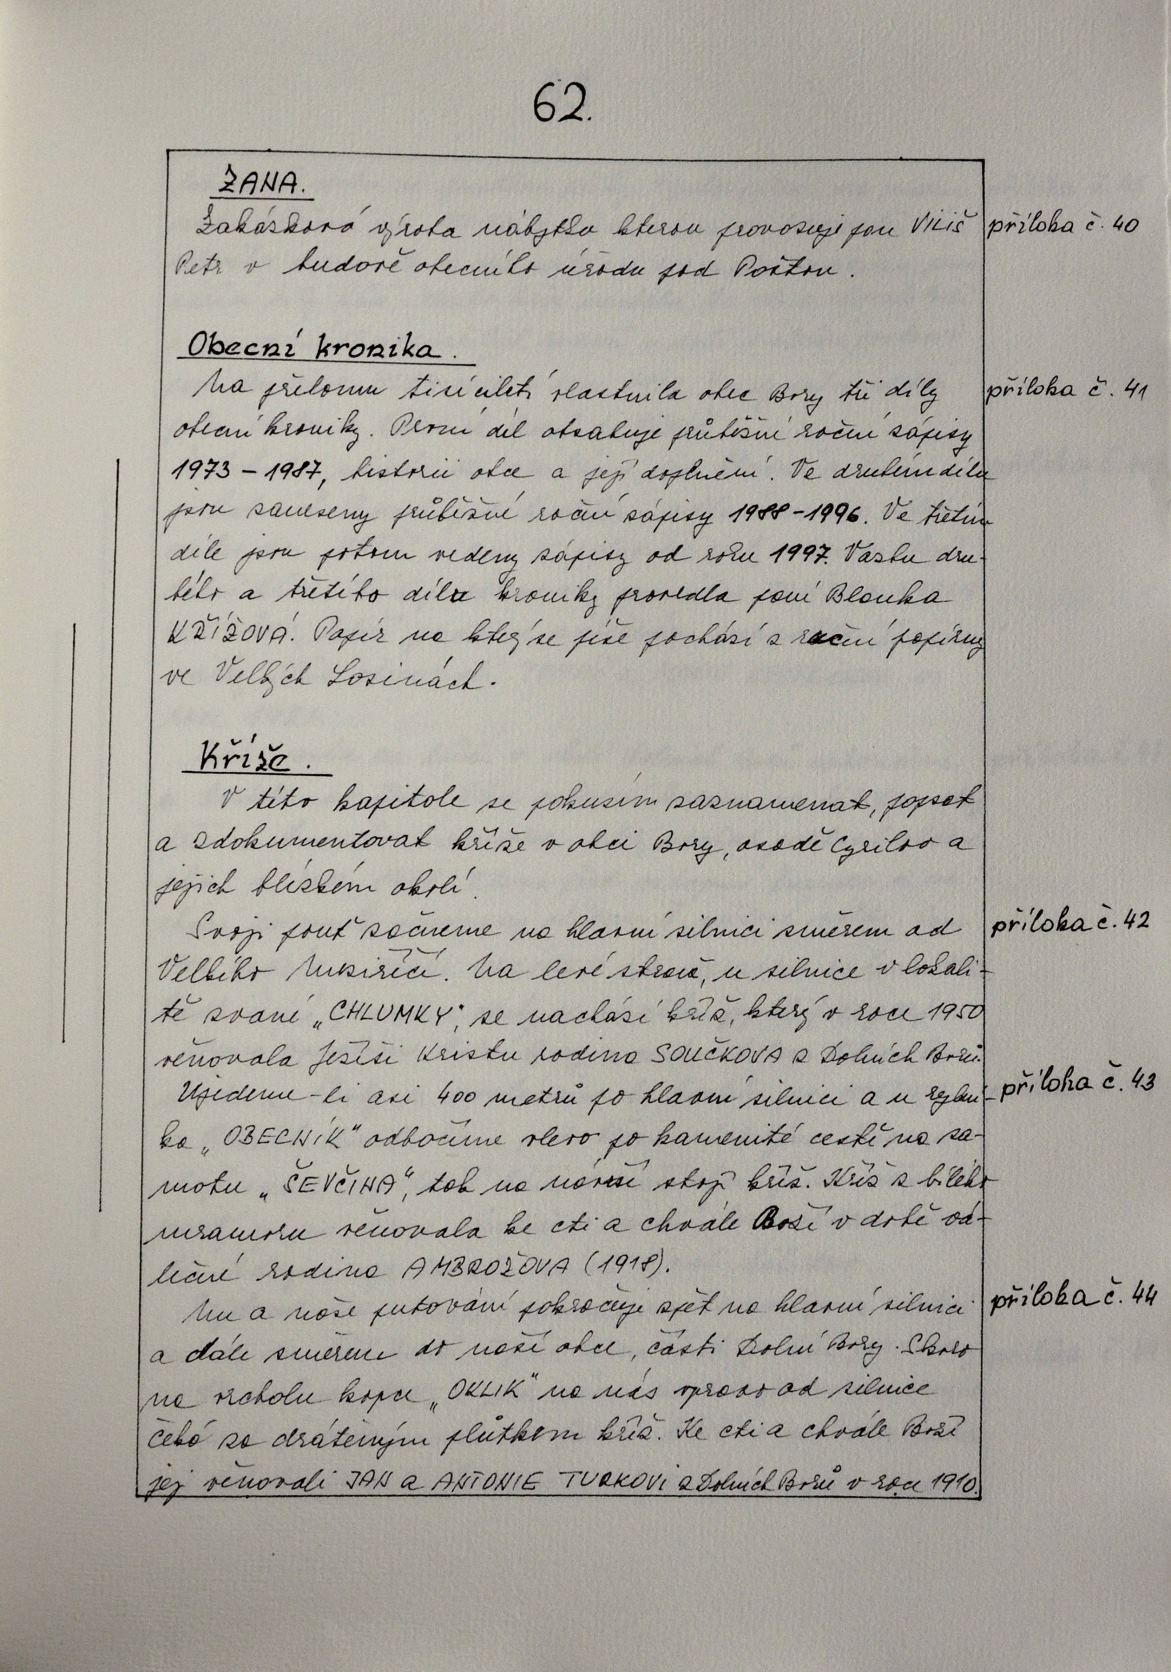 62.
ZANA.
Zakázková výroba nábytku kterou provozuje pan Viliš
příloha č. 40
Petr v budově obecního úřadu pod Poštou.
Obecní kronika.
Na přelomu tisíciletí vlastnila obec Bory tři díly
příloha č. 41
obecní kroniky. První díl obsahuje průběžné roční zápisy
1973 - 1987, historii obce a její doplnění. Ve druhém dílu
jsou zaneseny průběžné roční zápisy 1988-1996. Ve třetím
díle jsou potom vedeny zápisy od roku 1997. Vazbu dru-
hého a třetího dílu kroniky provedla paní Blanka
KŘÍŽOVÁ. Papír na který se píše pochází z ruční papírny
ve Velkých Losinách.
Kříže.
V této kapitole se pokusím zaznamenat, popsat
a zdokumentovat kříže v obci Bory, osadě Cyrilov a
jejich blízkém okolí.
Svoji pouť začneme na hlavní silnici směrem od
příloha č. 42
Velkého Meziříčí. Na levé straně, u silnice v lokali-
tě zvané „CHLUMKY", se nachází kříž, který v roce 1950
věnovala Ježíši Kristu rodina SOUČKOVA z Dolních Borů.
Ujdeme-li asi 400 metrů po hlavní silnici a u rybní-
příloha č. 43
ka „OBECNÍK" odbočíme vlevo po kamenité cestě na sa-
motu „ŠEVČINA", tak na návrší stojí kříž. Kříž z bílého
mramoru věnovala ke cti a chvále Boží v době vá-
lečné rodina AMBROŽOVA (1918).
Nu a naše putování pokračuje zpět na hlavní silnici
příloha č. 44
a dále směrem do naší obce, části Dolní Bory. Skoro
na vrcholu kopce „OKLIK" na nás vpravo od silnice
čeká za drátěným plůtkem kříž. Ke cti a chvále Boží
jej věnovali JAN a ANTONIE TURKOVI z Dolních Borů v roce 1910.